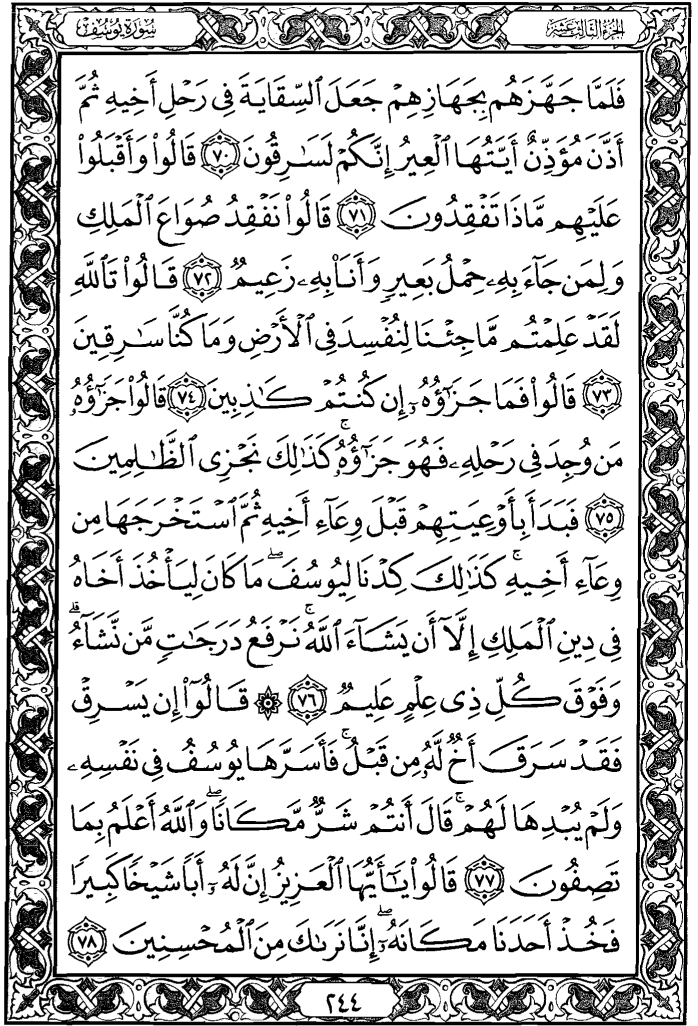 سُورَةُ يُوسُفَ
الجُزْءُ الثَّالِثَ عَشَرَ
فَلَمَّا جَهَّزَهُم بِجَهَازِهِمْ جَعَلَ ٱلسِّقَايَةَ فِى رَحْلِ أَخِيهِ ثُمَّ
أَذَّنَ مُؤَذِّنٌ أَيَّتُهَا ٱلْعِيرُ إِنَّكُمْ لَسَٰرِقُونَ ٧٠ قَالُوا۟ وَأَقْبَلُوا۟
عَلَيْهِم مَّاذَا تَفْقِدُونَ ٧١ قَالُوا۟ نَفْقِدُ صُوَاعَ ٱلْمَلِكِ
وَلِمَن جَآءَ بِهِۦ حِمْلُ بَعِيرٍ وَأَنَا۠ بِهِۦ زَعِيمٌ ٧٢ قَالُوا۟ تَٱللَّهِ
لَقَدْ عَلِمْتُم مَّا جِئْنَا لِنُفْسِدَ فِى ٱلْأَرْضِ وَمَا كُنَّا سَٰرِقِينَ
٧٣ قَالُوا۟ فَمَا جَزَٰٓؤُهُۥٓ إِن كُنتُمْ كَٰذِبِينَ ٧٤ قَالُوا۟ جَزَٰٓؤُهُۥ
مَن وُجِدَ فِى رَحْلِهِۦ فَهُوَ جَزَٰٓؤُهُۥ ۚ كَذَٰلِكَ نَجْزِى ٱلظَّٰلِمِينَ
٧٥ فَبَدَأَ بِأَوْعِيَتِهِمْ قَبْلَ وِعَآءِ أَخِيهِ ثُمَّ ٱسْتَخْرَجَهَا مِن
وِعَآءِ أَخِيهِ ۚ كَذَٰلِكَ كِدْنَا لِيُوسُفَ ۖ مَا كَانَ لِيَأْخُذَ أَخَاهُ
فِى دِينِ ٱلْمَلِكِ إِلَّآ أَن يَشَآءَ ٱللَّهُ ۚ نَرْفَعُ دَرَجَٰتٍ مَّن نَّشَآءُ ۗ
وَفَوْقَ كُلِّ ذِى عِلْمٍ عَلِيمٌ ٧٦ ۞ قَالُوٓا۟ إِن يَسْرِقْ
فَقَدْ سَرَقَ أَخٌ لَّهُۥ مِن قَبْلُ ۚ فَأَسَرَّهَا يُوسُفُ فِى نَفْسِهِۦ
وَلَمْ يُبْدِهَا لَهُمْ ۚ قَالَ أَنتُمْ شَرٌّ مَّكَانًا ۖ وَٱللَّهُ أَعْلَمُ بِمَا
تَصِفُونَ ٧٧ قَالُوا۟ يَٰٓأَيُّهَا ٱلْعَزِيزُ إِنَّ لَهُۥٓ أَبًا شَيْخًا كَبِيرًا
فَخُذْ أَحَدَنَا مَكَانَهُۥٓ ۖ إِنَّا نَرَىٰكَ مِنَ ٱلْمُحْسِنِينَ ٧٨
٢٤٤